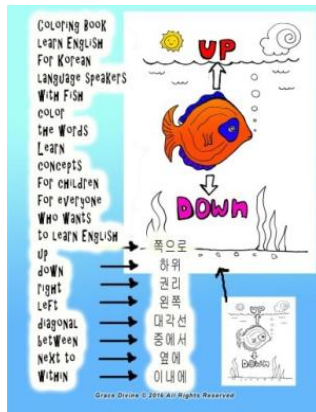 Coloring Book
Learn English
For Korean
Language Speakers
With Fish
Color
the Words
Learn
concepts
For children
For everyone
Who Wants
to Learn English
up 쪽으로
down 하위
right 권리
Left 왼쪽
diagonal 대각선
between 중에서
Next to 옆에
Within 이내에
UP
DOWN
UP
DOWN
Grace Divine © 2016 All Rights Reserved